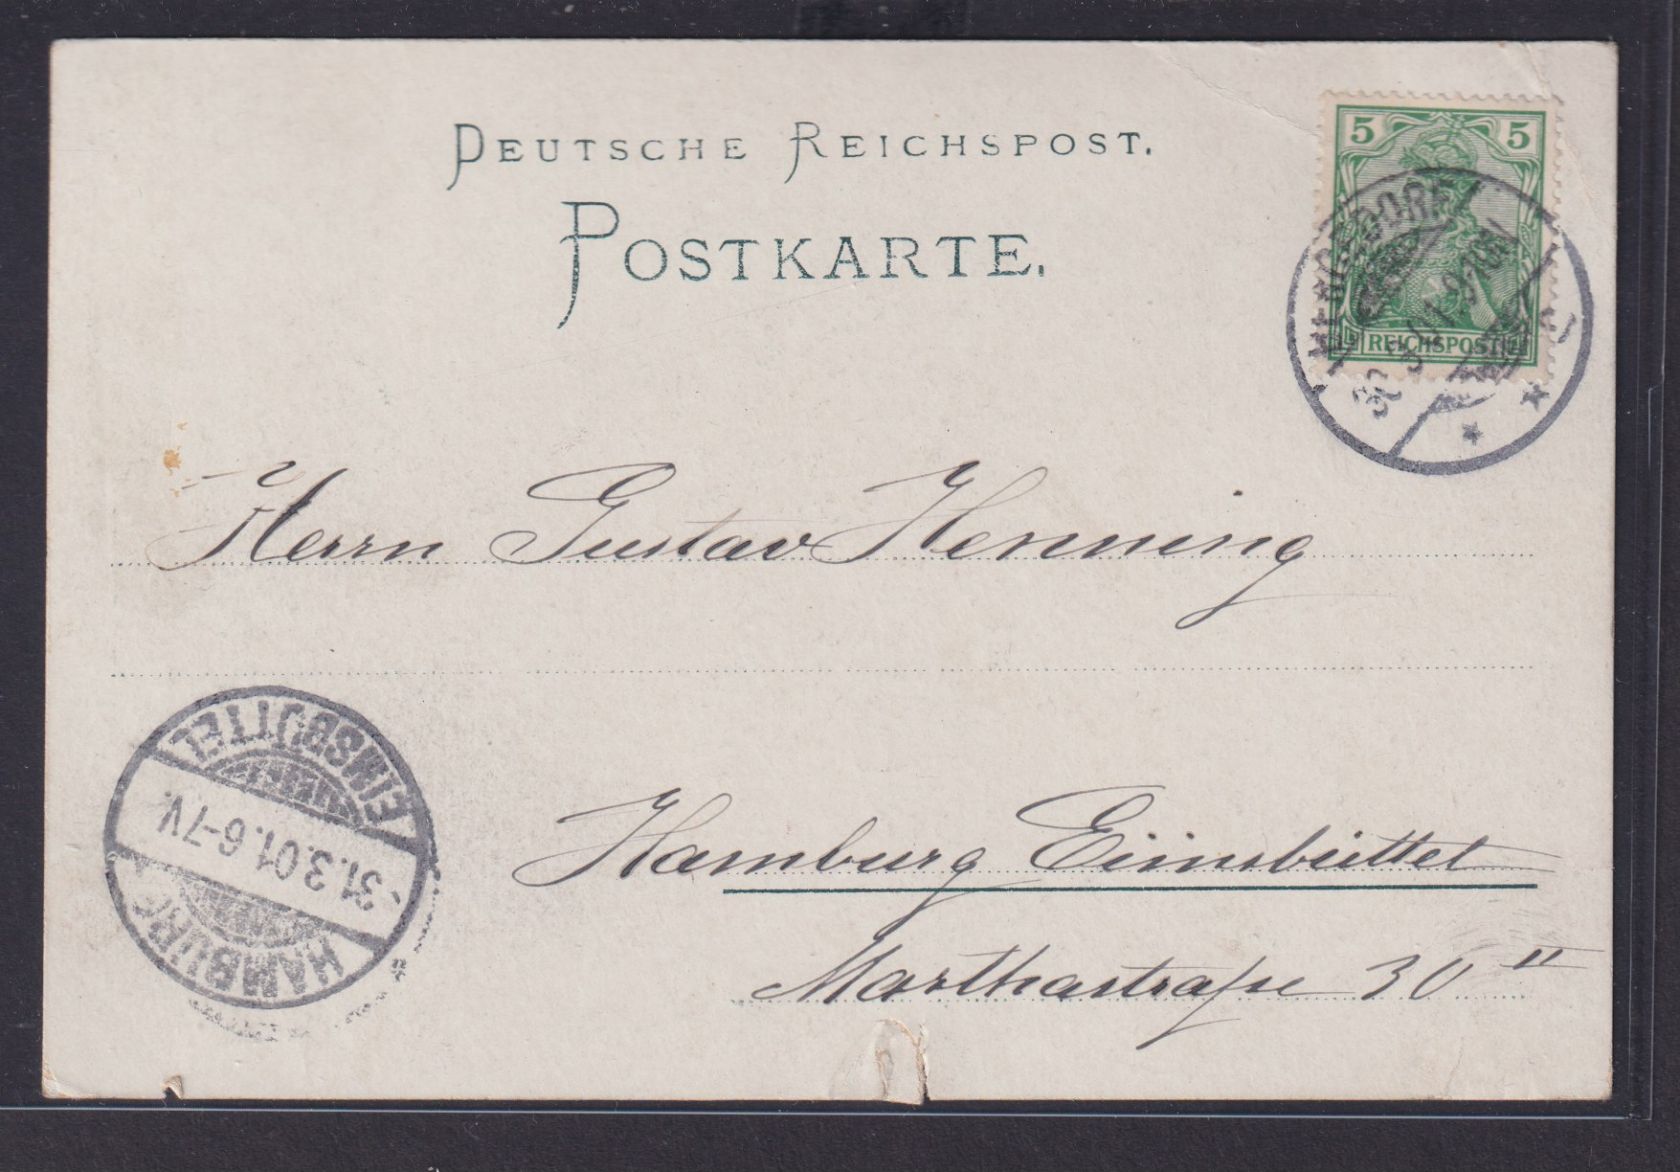 DEUTSCHE REICHSPOST.
POSTKARTE.
5 5
REICHSPOST
Herrn Gustav Henning
Hamburg Eimsbüttel
Marthastraße 30 II
EIMSBÜTTEL
31.3.01.6-7V.
HAMBURG